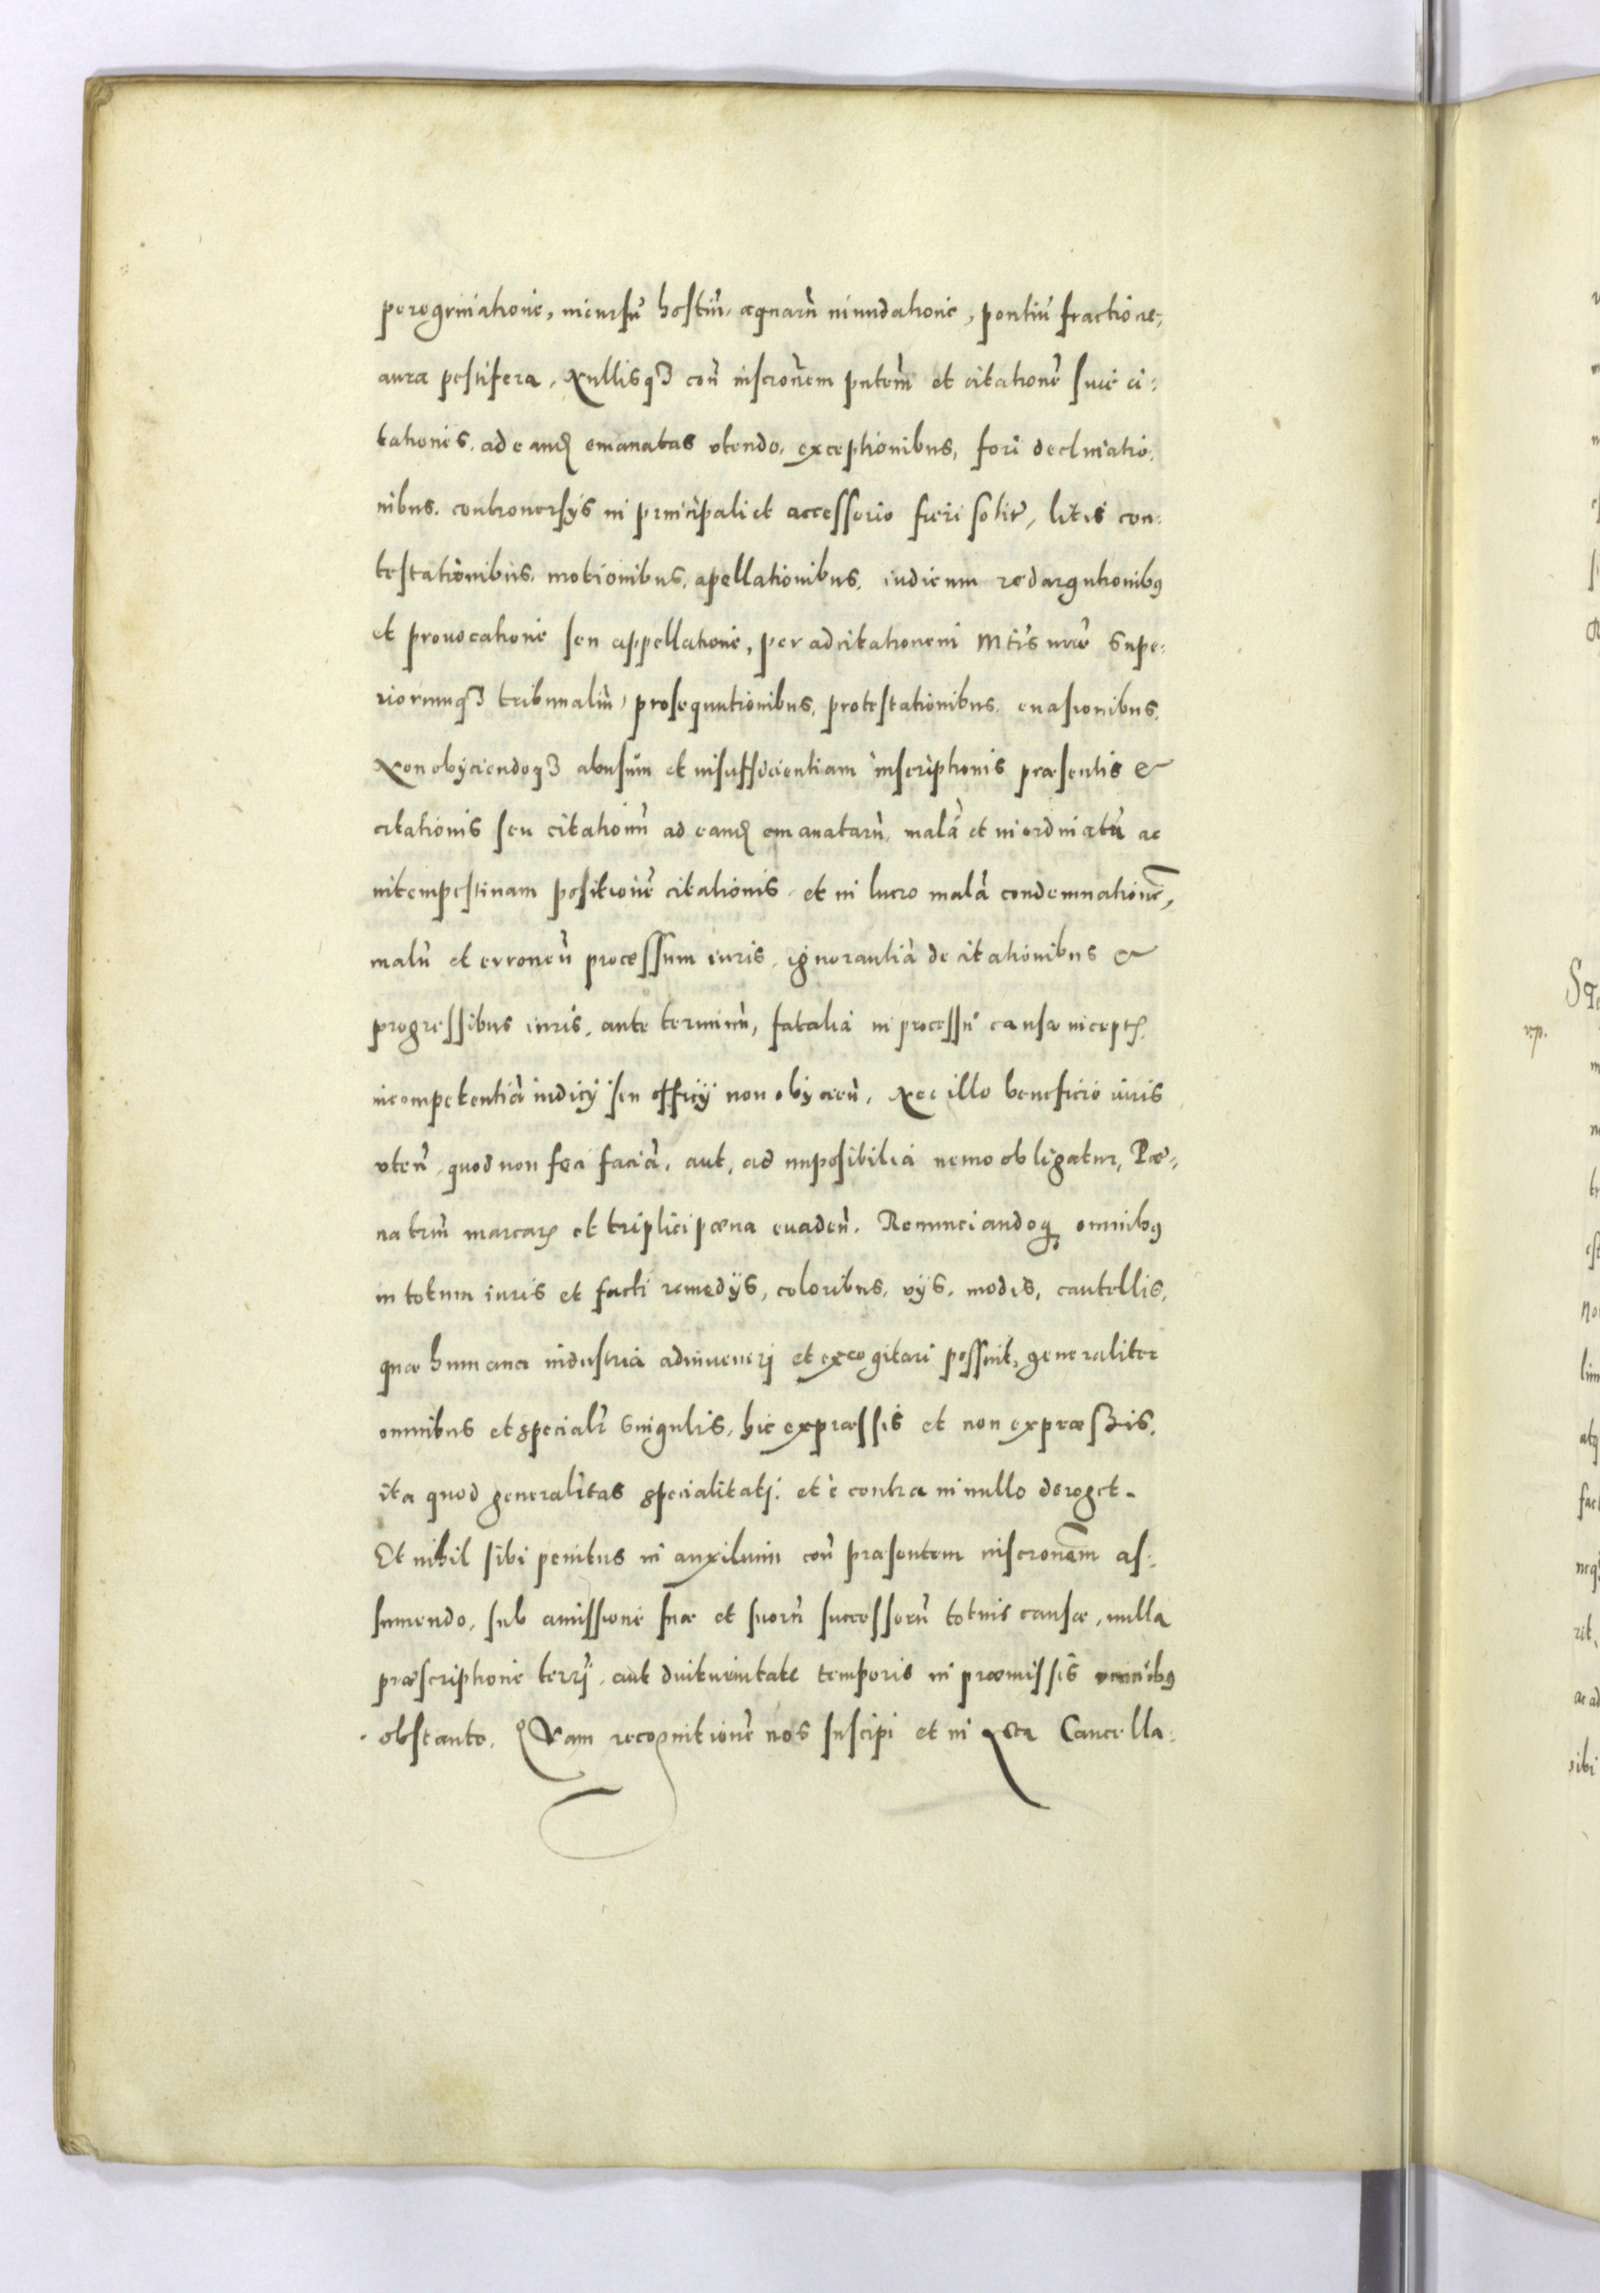 peregrinatione, incursu hostiũ, aquarũ inundatione, pontiũ fractione,
aura pestifera, Nullisq3 coñ inscrõnem pñtem et citationẽ siue ci:
tationes, ad eand emanatas vtendo, exceptionibus, fori declinatio:
nibus, controuersijs in principali et accessorio fieri solit, litis con:
testationibus, motionibus, apellationibus, iudicum redargutionibq
et prouocatione seu appellatione, per adcitationem Mtis nræ supe:
riorumq3 tribunaliũ, prosequutionibus, protestationibus, euasionibus,
Non obijciendoq3 abusum et insufficientiam inscriptionis præsentis &
citationis seu citationũ ad eand emanatarũ, malã et inordinatã ac
intempestiuam positionẽ citationis, et in lucro malã condemnationẽ,
malũ et erroneũ processum iuris, ignorantiã de citationibus &
progressibus iuris, ante terminũ, fatalia in processu causæ incept
incompetentiã iudicij seu officij non obijcieñ, Nec illo beneficio iuris
vteñ, quod non feci faciã, aut, ad impossibilia nemo obligatur, Pœ:
na triũ marcar et triplici pœna euadeñ. Renunciandoq omnibq
in totum iuris et facti remedijs, coloribus, vijs, modis, cautellis,
quæ humana industria adinuenerj et excogitari possint, generaliter
omnibus et specialr singulis, hic expræssis et non expræssis,
ita quod generalitas specialitatj, et è contra in nullo deroget.
Et nihil sibi penitus in auxilium coñ præsentem inscronẽm as:
sumendo, sub amissione suæ et suorũ successorũ totius causæ, nulla
præscriptione terrj, aut diuturnitate temporis in præmissis omnibq
obstante. Quam recognitionẽ nos suscipi et in Acta Cancella: